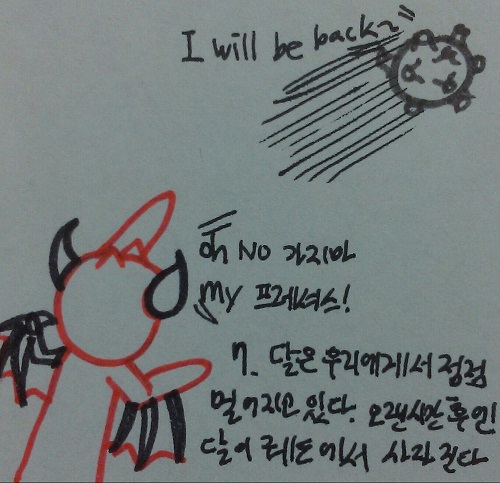 I will be back~
oh NO 가지마
my 프레셔스!
7. 달은 우리에게서 점점
멀어지고 있다. 오랜시간 후엔!
달이 궤도에서 사라진다